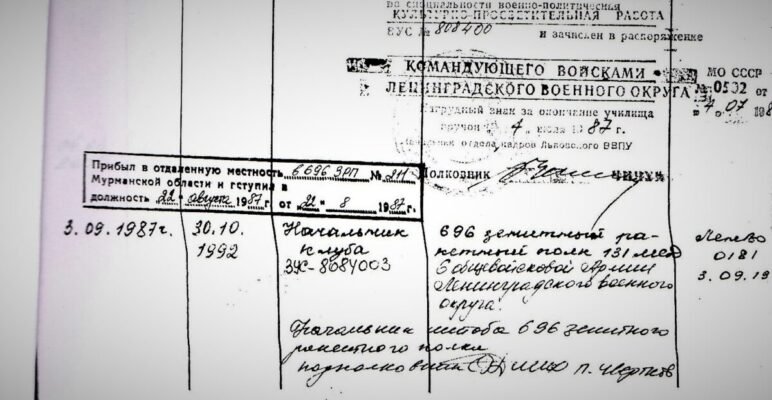 по специальности военно-политическая
КУЛЬТУРНО-ПРОСВЕТИТЕЛЬНАЯ РАБОТА
ВУС № 808400 и зачислен в распоряжение
КОМАНДУЮЩЕГО ВОЙСКАМИ МО СССР
ЛЕНИНГРАДСКОГО ВОЕННОГО ОКРУГА № 0502 от
4.07.198
Нагрудный знак за окончание училища
вручен "4" июля 1987 г.
Начальник отдела кадров Львовского ВВПУ
Полковник
Прибыл в отдаленную местность в 696 ЗРП № 211
Мурманской области и вступил в
должность "22" августа 1987 г. от "21" 8 1987 г.
3.09.1987г.
30.10.
1992
Начальник
клуба
ВУС-8084003
696 зенитный ра-
кетный полк 131 мсд
6 общевойсковой Армии
Ленинградского военного
округа.
0181
3.09.19
Начальник штаба 696 зенитного
ракетного полка
подполковник